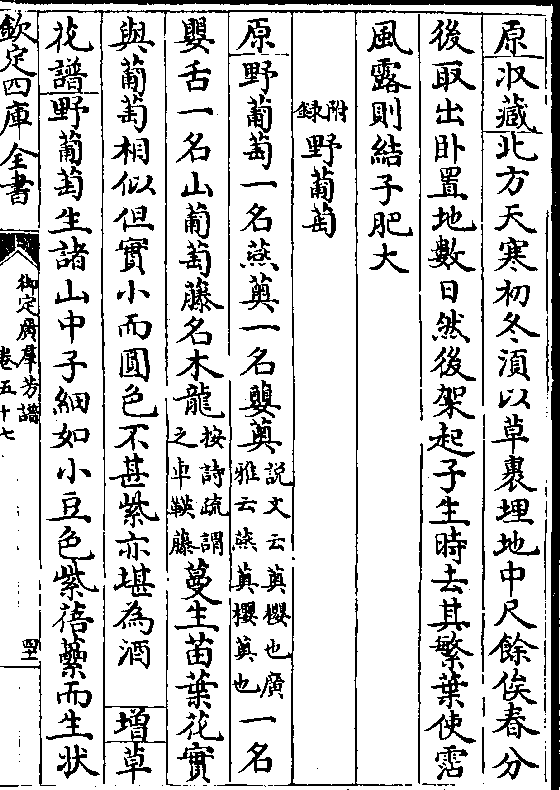 原收藏北方天寒初冬湏以草裹埋地中尺餘俟春分
後取出卧置地數日然後架起子生時去其繁葉使霑
風露則結子肥大
附録野葡萄
原野葡萄一名燕薁一名蘡薁説文云薁櫻也廣雅云燕薁櫻薁也一名
嬰舌一名山葡萄藤名木龍按詩疏謂之車鞅藤蔓生苗葉花實
與葡萄相似但實小而圓色不甚紫亦堪為酒 增草
花譜野葡萄生諸山中子細如小豆色紫蓓蘽而生狀
欽定四庫全書
御定廣羣芳譜
卷五十七